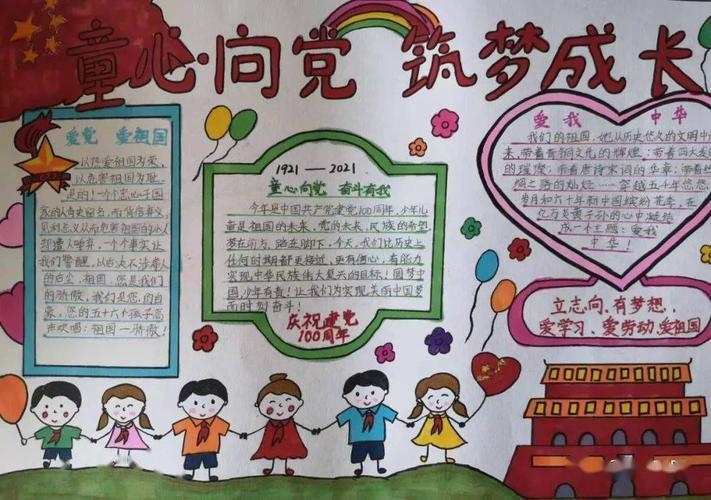 童心向党 筑梦成长
爱党 爱祖国
以热爱祖国为荣,
以危害祖国为耻
是的!一个忠心于国
家的人奇史留名,而背信弃义,
见利忘义从而危害祖国的小人
却遭人唾弃。一个个事实让
我们警醒,
祖国,您是我们
的骄傲,我们是您的自
豪,您的五十六个孩子高
声欢唱:祖国—骄傲!
1921—2021
童心向党 奋斗有我
今年是中国共产党建党100周年,少年儿
童是祖国的未来,党的未来,民族的希望
梦在前方,路在脚下,今天,我们比历史上
任何时期都更接近,更有信心,有能力
实现中华民族伟大复兴的目标!圆梦中
国,少年有责!让我们为实现美丽中国梦
而时刻奋斗!
庆祝建党
100周年
爱我 中华
我们的祖国,她从历史悠久的文明中
来,带着青铜文化的辉煌;带着四大发
的璀璨;带着唐诗宋词的华章;带着丝
绸之路的灿烂……穿越五千年
岁月和六十年新中国缤纷光车,在
亿万炎黄子孙的心中凝结
成一个主题:爱我
中华!
立志向、有梦想,
爱学习、爱劳动,爱祖国